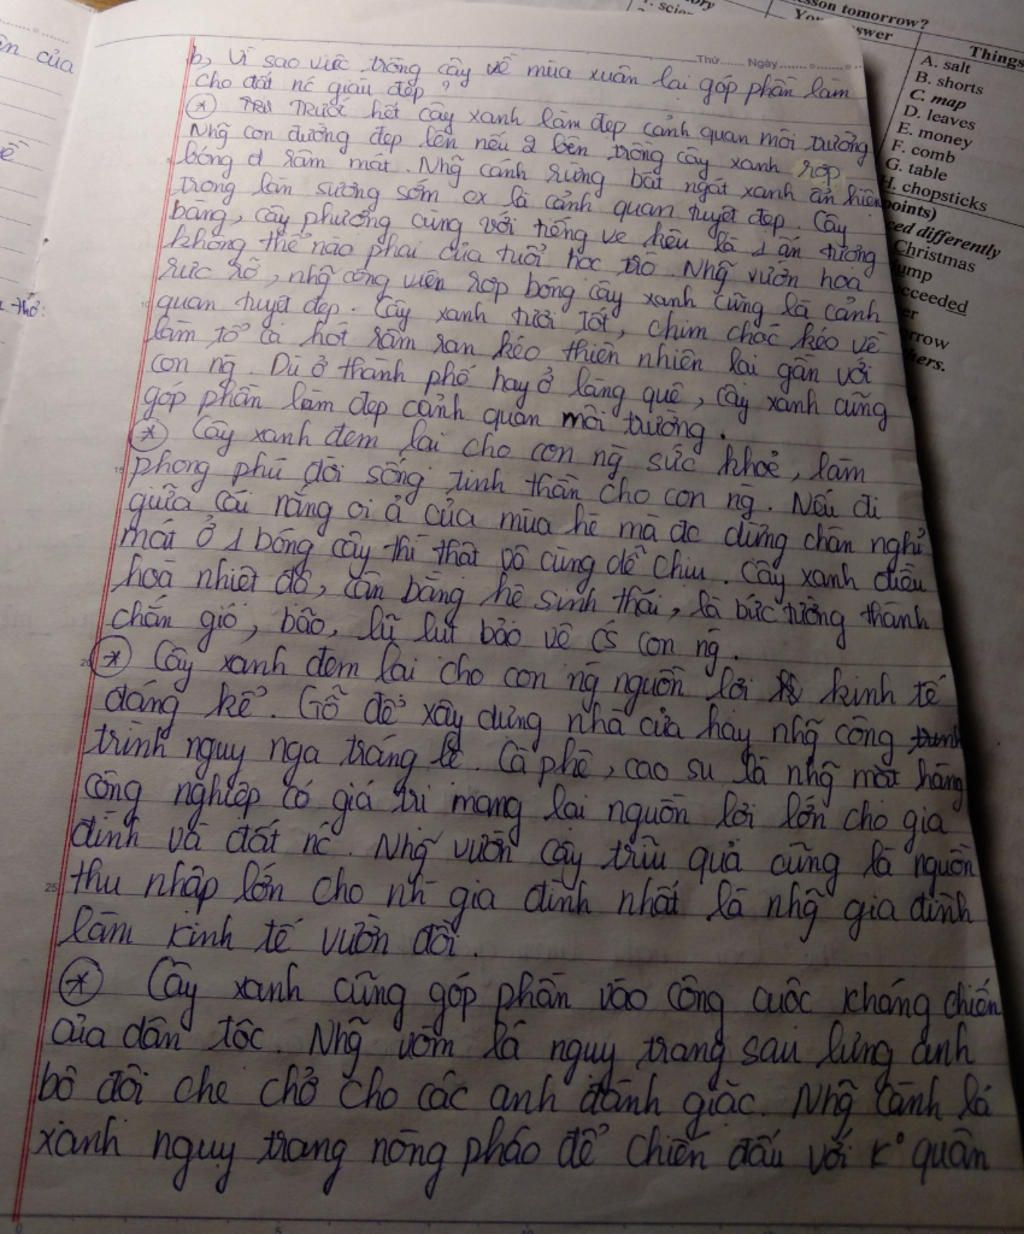 b, Vì sao việc trồng cây về mùa xuân lại góp phần làm
cho đất nc giàu đẹp?
Trước hết cây xanh làm đẹp cảnh quan môi trường
Nhg con đường đẹp lên nếu 2 bên trồng cây xanh rợp
bóng râm mát. Nhg cánh rừng bát ngát xanh ẩn hiện
trong làn sương sớm là cảnh quan tuyệt đẹp. Cây
bàng, cây phượng cùng với tiếng ve kêu là 1 ấn tượng
không thể nào phai của tuổi học trò. Nhg vườn hoa
rực rỡ, nhg công viên rợp bóng cây xanh cũng là cảnh
quan tuyệt đẹp. Cây xanh tươi tốt, chim chóc kéo về
làm tổ ca hót râm ran kéo thiên nhiên lại gần với
con ng. Dù ở thành phố hay ở làng quê, cây xanh cũng
góp phần làm đẹp cảnh quan môi trường.
Cây xanh đem lại cho con ng sức khoẻ, làm
phong phú đời sống tinh thần cho con ng. Nếu đi
giữa cái nắng oi ả của mùa hè mà đc dừng chân nghỉ
mát ở 1 bóng cây thì thật vô cùng dễ chịu. Cây xanh điều
hoà nhiệt độ, cân bằng hệ sinh thái, là bức tường thành
chắn gió, bão, lũ lụt bảo vệ cs con ng.
Cây xanh đem lại cho con ng nguồn lợi kinh tế
đáng kể. Gỗ để xây dựng nhà cửa hay nhg công
trình nguy nga tráng lệ. Cà phê, cao su là nhg mặt hàng
công nghiệp có giá trị mang lại nguồn lợi lớn cho gia
đình và đất nc. Nhg vườn cây trĩu quả cũng là nguồn
thu nhập lớn cho nh gia đình nhất là nhg gia đình
làm kinh tế vườn đồi.
Cây xanh cũng góp phần vào công cuộc kháng chiến
của dân tộc. Nhg vòm lá nguy trang sau lưng anh
bộ đội che chở cho các anh đánh giặc. Nhg cành lá
xanh nguy trang nòng pháo để chiến đấu với k° quân
Thứ Ngày
ần của
sson tomorrow?
Things
A. salt
B. shorts
C. map
D. leaves
E. money
F. comb
G. table
H. chopsticks
points)
ced differently
Christmas
ump
cceeded
er
rrow
hers.
25